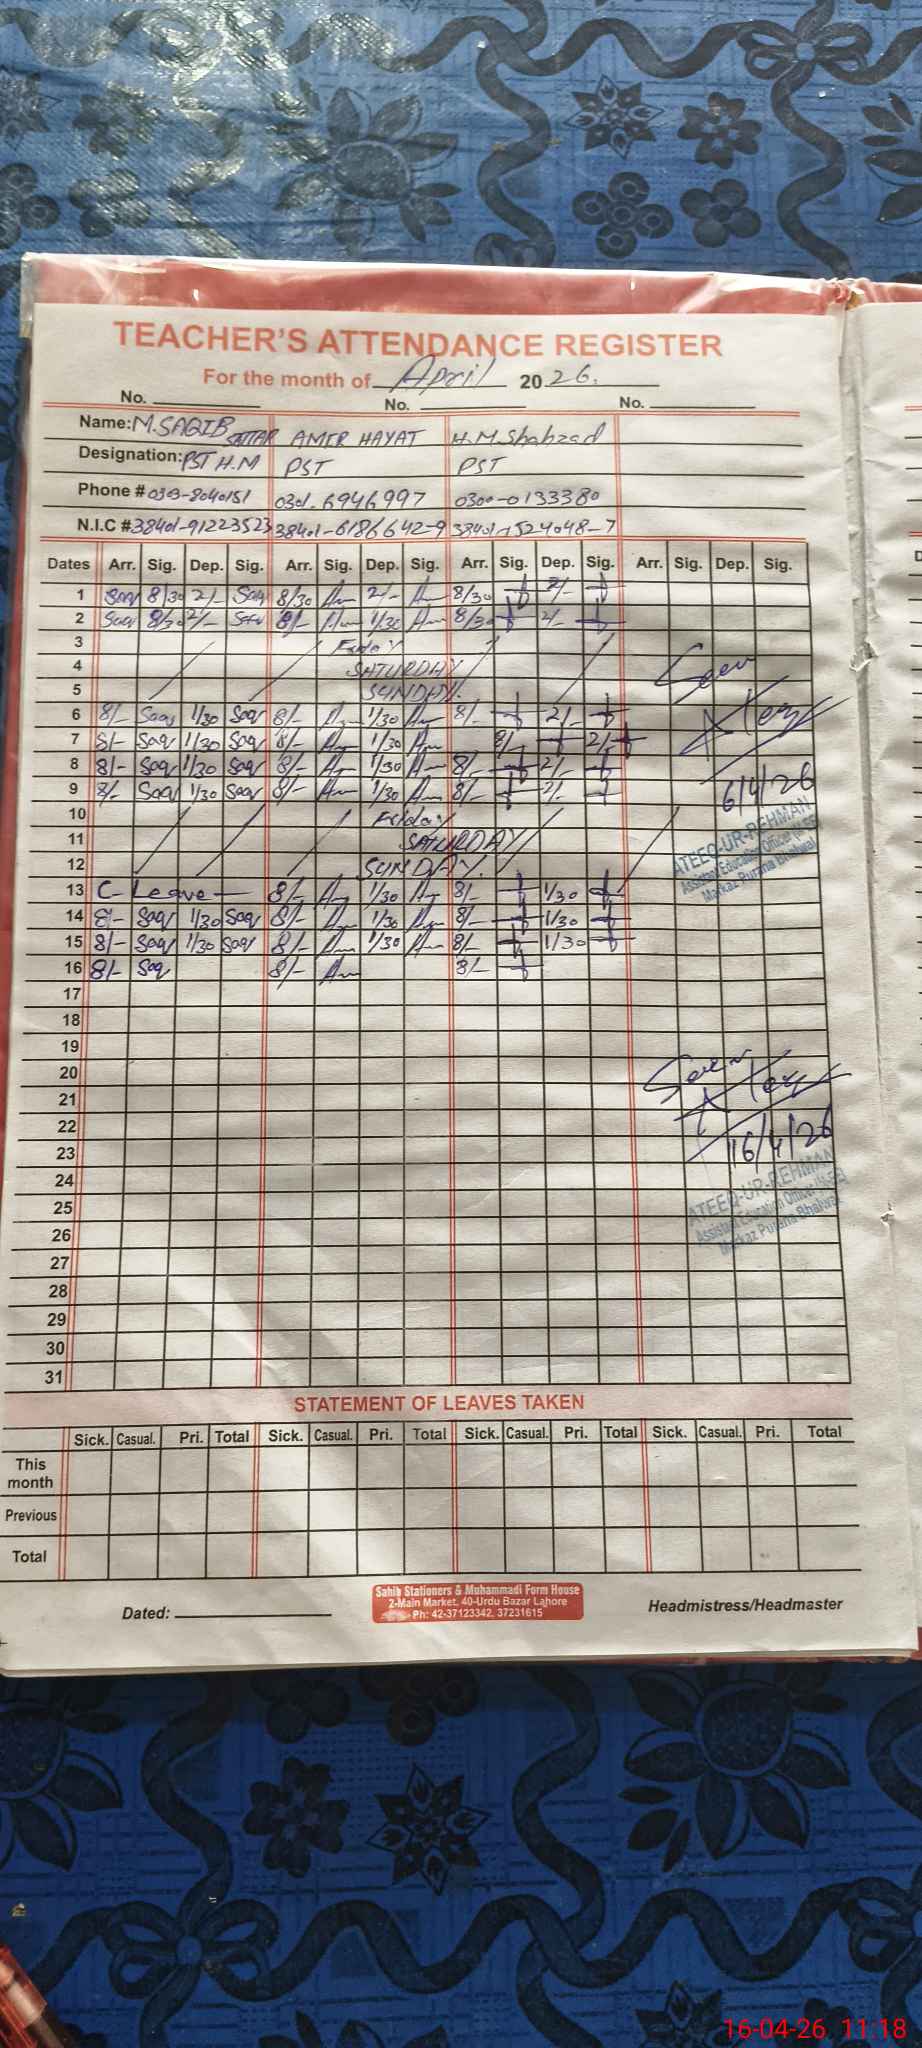 TEACHER'S ATTENDANCE REGISTER
For the month of April 2026.
No. No. No.
Name: M. SAQIB SATTAR AMER HAYAT H.M. Shahzad
Designation: PST H.M PST PST
Phone # 0303-8040151 0301-6946997 0300-0133380
N.I.C # 38401-91223523 38401-6186642-9
Dates Arr. Sig. Dep. Sig. Arr. Sig. Dep. Sig. Arr. Sig. Dep. Sig. Arr. Sig. Dep. Sig.
1 Saq 8/30 2/- Saq 8/30 Am 2/- Am 8/30 2/-
2 Saq 8/30 2/- Saq 8/- Am 1/30 Am 8/30 2/-
3 Friday
4 SATURDAY
5 SUNDAY.
6 8/- Saq 1/30 Saq 8/- Am 1/30 Am 8/- 2/-
7 8/- Saq 1/30 Saq 8/- Am 1/30 Am 8/- 2/-
8 8/- Saq 1/30 Saq 8/- Am 1/30 Am 8/- 2/-
9 8/- Saq 1/30 Saq 8/- Am 1/30 Am 8/- 2/-
10 Friday
11 SATURDAY
12 SUNDAY.
13 C- Leave 8/- Am 1/30 Am 8/- 1/30
14 8/- Saq 1/30 Saq 8/- Am 1/30 Am 8/- 1/30
15 8/- Saq 1/30 Saq 8/- Am 1/30 Am 8/- 1/30
16 8/- Saq 8/- Am 8/-
17
18
19
20
21
22
23
24
25
26
27
28
29
30
31
Seen
6/4/26
ATEEQ-UR-REHMAN
Assistant Education Officer (M-EE)
Markaz Purana Bhalwal
Seen
16/4/26
ATEEQ-UR-REHMAN
Assistant Education Officer (M-EE)
Markaz Purana Bhalwal
STATEMENT OF LEAVES TAKEN
Sick. Casual. Pri. Total Sick. Casual. Pri. Total Sick. Casual. Pri. Total Sick. Casual. Pri. Total
This month
Previous
Total
Dated:
Sahib Stationers & Muhammadi Form House
2-Main Market, 40-Urdu Bazar Lahore
Ph: 42-37123342, 37231615
Headmistress/Headmaster
16-04-26 11:18